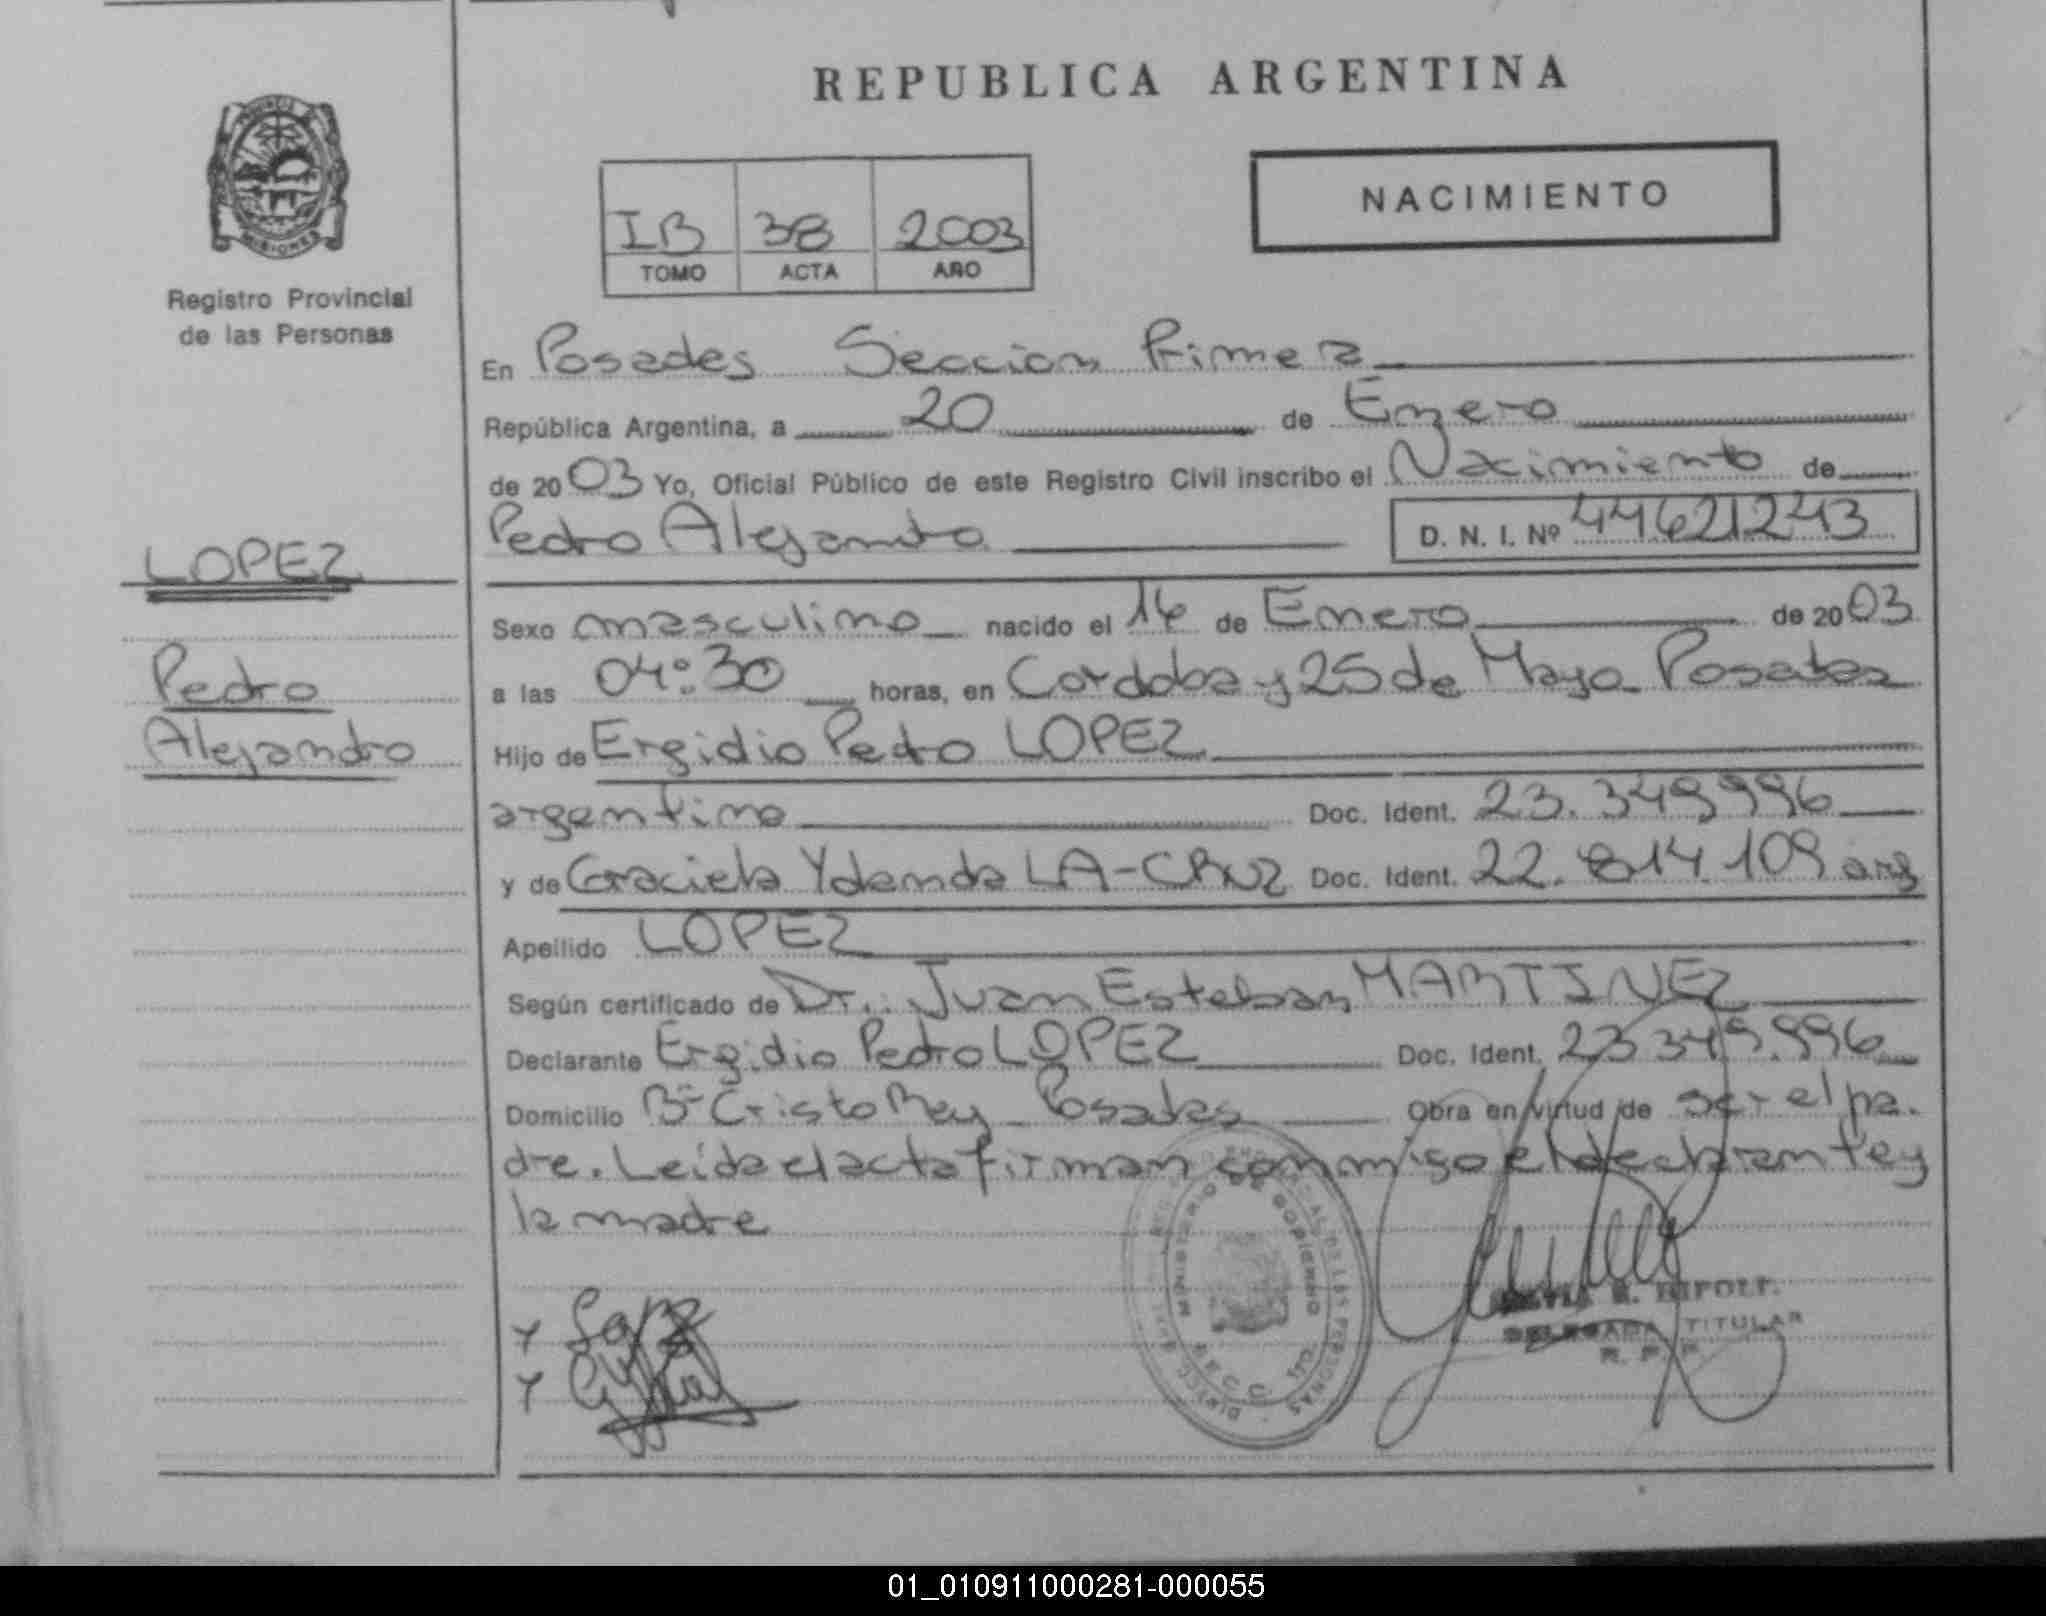 REPUBLICA ARGENTINA
PROVINCIA DE
MISIONES
Registro Provincial
de las Personas
NACIMIENTO
IB 38 2003
TOMO ACTA AÑO
En Posadas Seccion Primera
República Argentina, a 20 de Enero
de 2003 Yo, Oficial Público de este Registro Civil inscribo el Nacimiento de
Pedro Alejandro D. N. I. Nº 44621243
LOPEZ
Pedro
Alejandro
Sexo masculino nacido el 14 de Enero de 2003
a las 04:30 horas, en Cordoba y 25 de Mayo Posadas
Hijo de Ergidio Pedro LOPEZ
argentino Doc. Ident. 23.349996
y de Graciela Yolanda LA-CRUZ Doc. Ident. 22.814.109 arg
Apellido LOPEZ
Según certificado de Dr.: Juan Esteban MARTINEZ
Declarante Ergidio Pedro LOPEZ Doc. Ident. 23 349.996
Domicilio Bº Cristo Rey Posadas Obra en virtud de ser el pa.
dre. Leida el acta firman conmigo el declarante y
la madre
MINISTERIO DE GOBIERNO
R. RIPOLL
DELEGADA TITULAR
R. P. P.
01_010911000281-000055